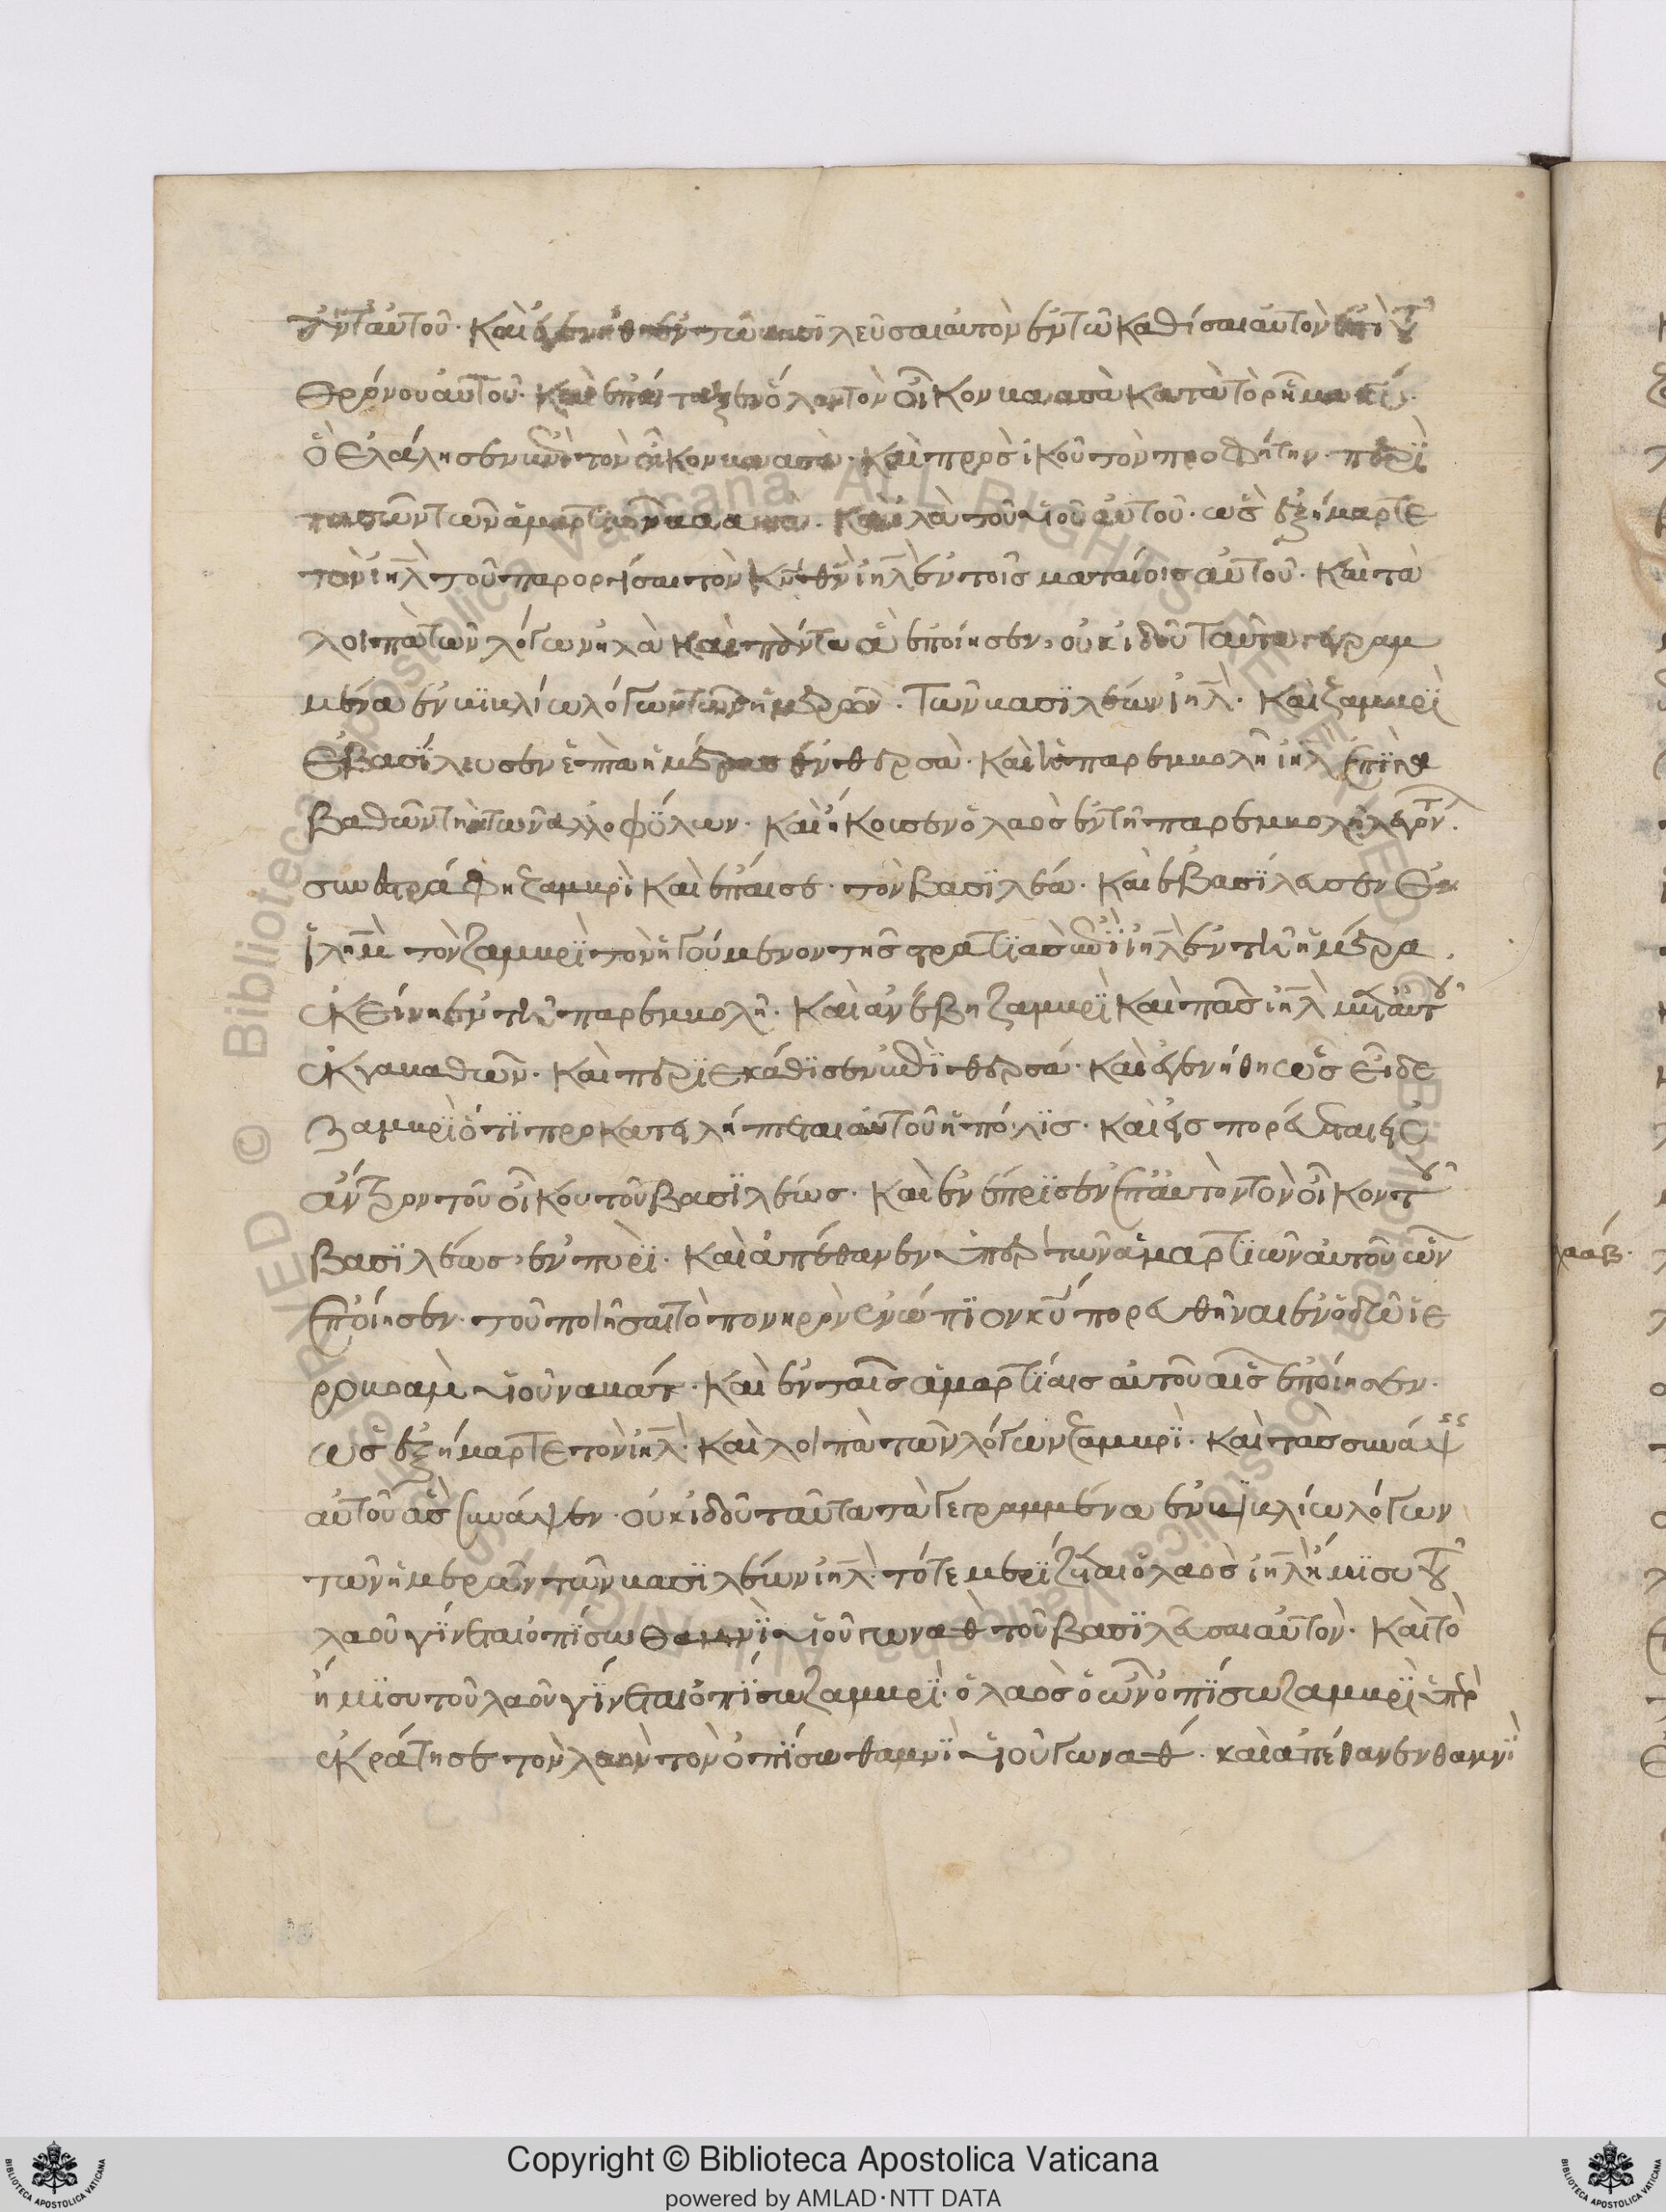 ἀντ αὐτοῦ· καὶ ἐγενήθη ἐν τῶ βασιλεῦσαι αὐτὸν ἐν τῶ καθίσαι αὐτὸν ἐπὶ τοῦ
θρόνου αὐτοῦ· καὶ ἐπάταξεν ὅλον τὸν οἶκον βαασὰ κατὰ τὸ ῥῆμα κυ·
ὃ ἐλάλησεν ἐπὶ τὸν οἶκον βαασὰ· καὶ πρὸσ ἰοῦ τὸν προφήτην· περὶ
πασῶν τῶν ἁμαρτιῶν βαασὰ· καὶ ἠλὰ τοῦ υἱοῦ αὐτοῦ· ὡσ ἐξήμαρτε
τὸν ιηλ τοῦ παροργίσαι τὸν κν θν ιηλ ἐν τοῖσ ματαίοισ αὐτοῦ· καὶ τὰ
λοιπὰ τῶν λόγων ἠλὰ καὶ πάντα ἃ ἐποίησεν, οὐκ ἰδοῦ ταῦτα γεγραμ
μένα ἐν βιβλίω λόγων τῶν ἡμερῶν· τῶν βασιλέων ιηλ· καὶ ζαμβρὶ
ἐβασίλευσεν ἑπτὰ ἡμέρασ ἐν θερσὰ· καὶ ἡ παρεμβολὴ ιηλ ἐπὶ γα
βαθῶν τὴν τῶν ἀλλοφύλων· καὶ ἤκουσεν ὁ λαὸσ ἐν τῆ παρεμβολῆ λεγόντων·
συνεστράφη ζαμβρὶ καὶ ἔπαισε· τὸν βασιλέα· καὶ ἐβασίλευσεν ἐν
ιλημ τὸν ζαμβρὶ τὸν ἡγούμενον τῆσ στρατιᾶσ ἐπὶ ιηλ ἐν τῆ ἡμέρα
ἐκείνη ἐν τῆ παρεμβολῆ· καὶ ἀνέβη ζαμβρὶ καὶ πᾶσ ιηλ μετ αὐτοῦ
ἐκ γαβαθῶν· καὶ περιεκάθισεν ἐπὶ θερσά· καὶ ἐγενήθη ὡσ εἶδε
ζαμβρὶ ὅτι προκατείληπται αὐτοῦ ἡ πόλισ· καὶ εἰσπορεύεται εἰσ
ἄντρον τοῦ οἴκου τοῦ βασιλέωσ· καὶ ἐνέπρισεν ἐπ αὐτὸν τὸν οἶκον τοῦ
βασιλέωσ, ἐν πυρὶ· καὶ ἀπέθανεν ὑπὲρ τῶν ἁμαρτιῶν αὐτοῦ ὧν
ἐποίησεν· τοῦ ποιῆσαι τὸ πονηρὸν ἐνώπιον κυ πορευθῆναι ἐν ὁδῶ ἱε
ροβοὰμ υἱοῦ ναβάτ· καὶ ἐν ταῖσ ἁμαρτίαισ αὐτοῦ αἷσ ἐποίησεν·
ὡσ ἐξήμαρτε τὸν ιηλ· καὶ λοιπὰ τῶν λόγων ζαμβρὶ· καὶ τὰσ συνάψεισ
αὐτοῦ ἃσ συνάψεν· οὐκ ἰδοῦ ταῦτα τὰ γεγραμμένα ἐν βιβλίω λόγων
τῶν ἡμερῶν τῶν βασιλέων ιηλ· τότε μερίζεται ὁ λαὸσ ιηλ ἥμισυ τοῦ
λαοῦ γίνεται ὀπίσω θαμνὶ υἱοῦ γωναθ τοῦ βασιλεῦσαι αὐτὸν· καὶ τὸ
ἥμισυ τοῦ λαοῦ γίνεται ὀπίσω ζαμβρὶ· ὁ λαὸσ ὁ ὢν ὀπίσω ζαμβρὶ ὑπερ
εκράτησε τὸν λαὸν τὸν ὀπίσω θαμνὶ υἱοῦ γωναθ· καὶ ἀπέθανεν θαμνὶ